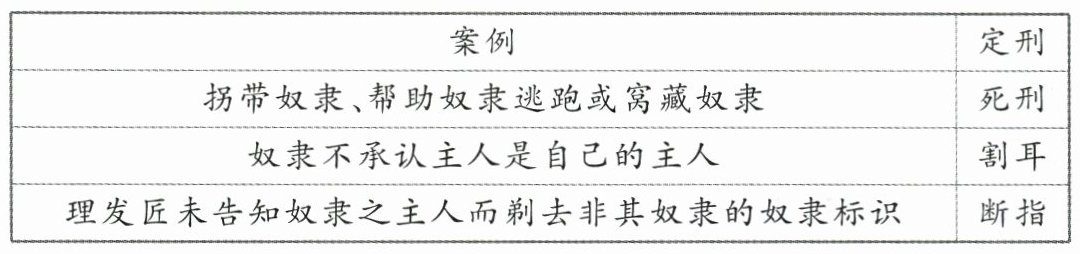 案例 定刑
拐带奴隶、帮助奴隶逃跑或窝藏奴隶 死刑
奴隶不承认主人是自己的主人 割耳
理发匠未告知奴隶之主人而剃去非其奴隶的奴隶标识 断指